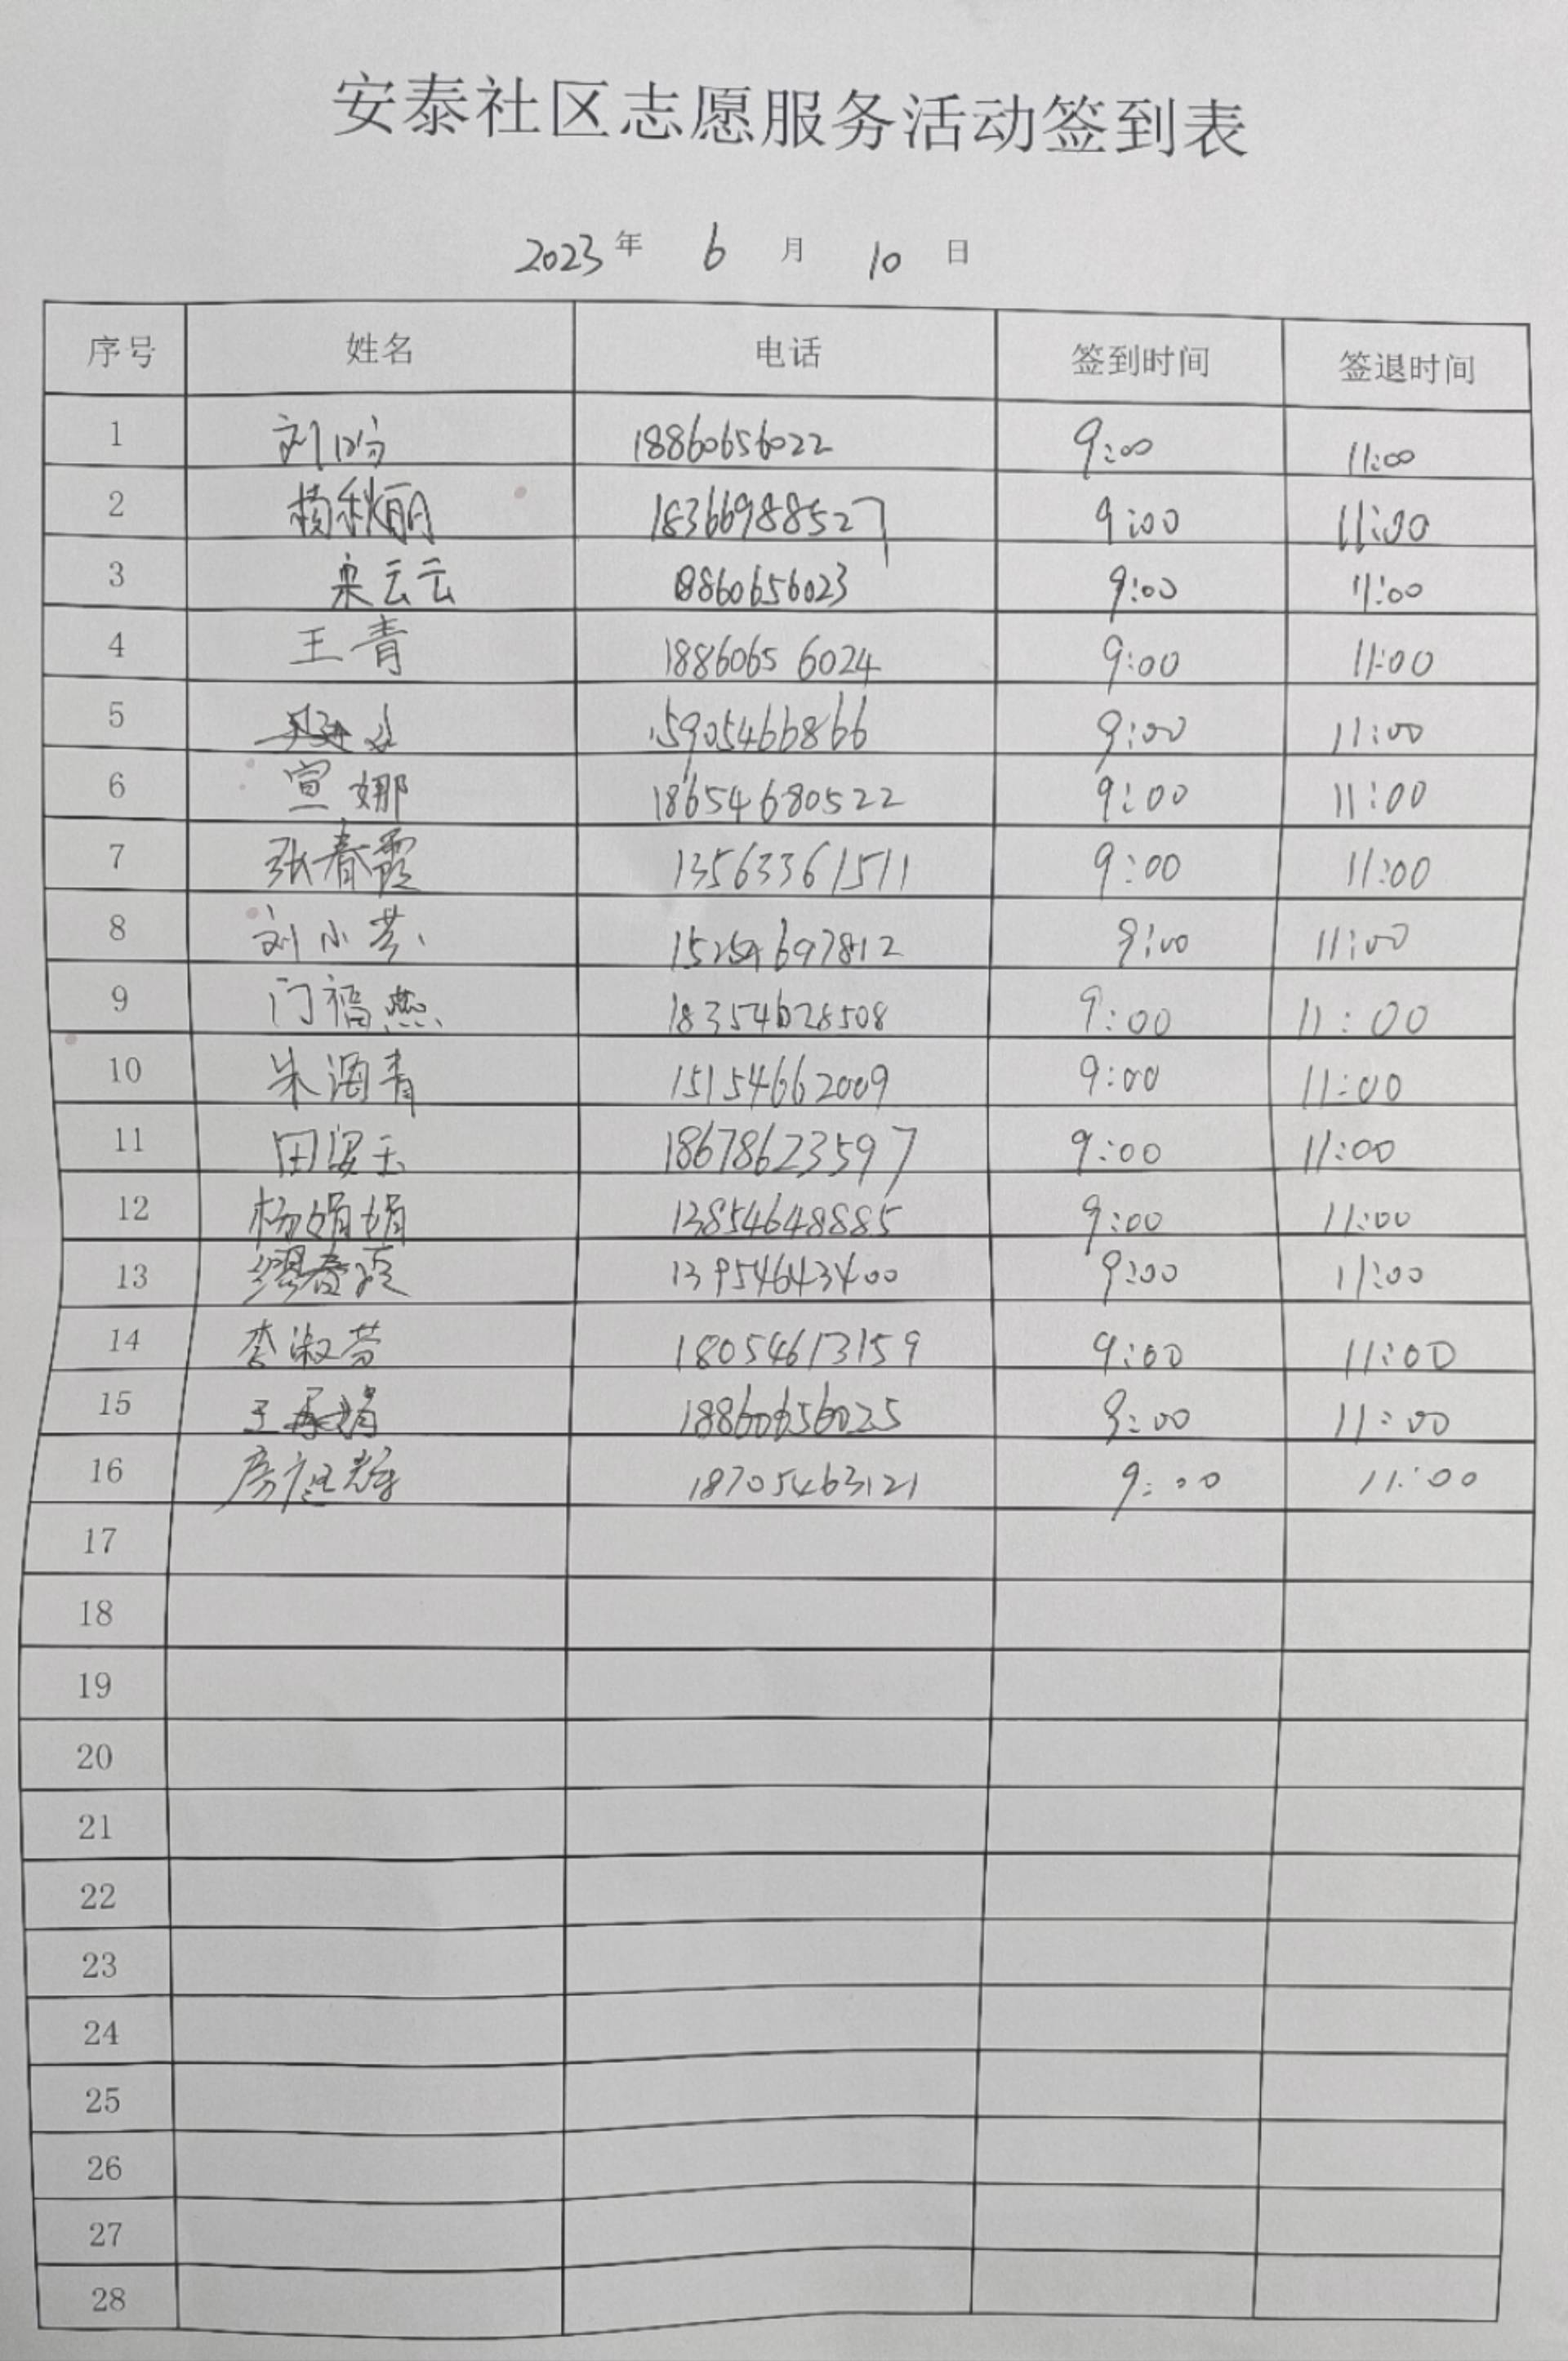 安泰社区志愿服务活动签到表
2023年 6 月 10 日
序号 姓名 电话 签到时间 签退时间
1 刘 18860656022 9:00 11:00
2 杨秋丽 18366988527 9:00 11:00
3 栾云云 18860656023 9:00 11:00
4 王青 18860656024 9:00 11:00
5 15905466866 9:00 11:00
6 宣娜 18654680522 9:00 11:00
7 张春霞 13563361511 9:00 11:00
8 刘小芹 9:00 11:00
9 门福燕 18354628508 9:00 11:00
10 朱海青 15154662009 9:00 11:00
11 田安玉 18678623597 9:00 11:00
12 杨娟娟 13854648885 9:00 11:00
13 缪春霞 13954643400 9:00 11:00
14 李淑芳 18054613159 9:00 11:00
15 王 娟 18860656025 9:00 11:00
16 房 18705463121 9:00 11:00
17
18
19
20
21
22
23
24
25
26
27
28